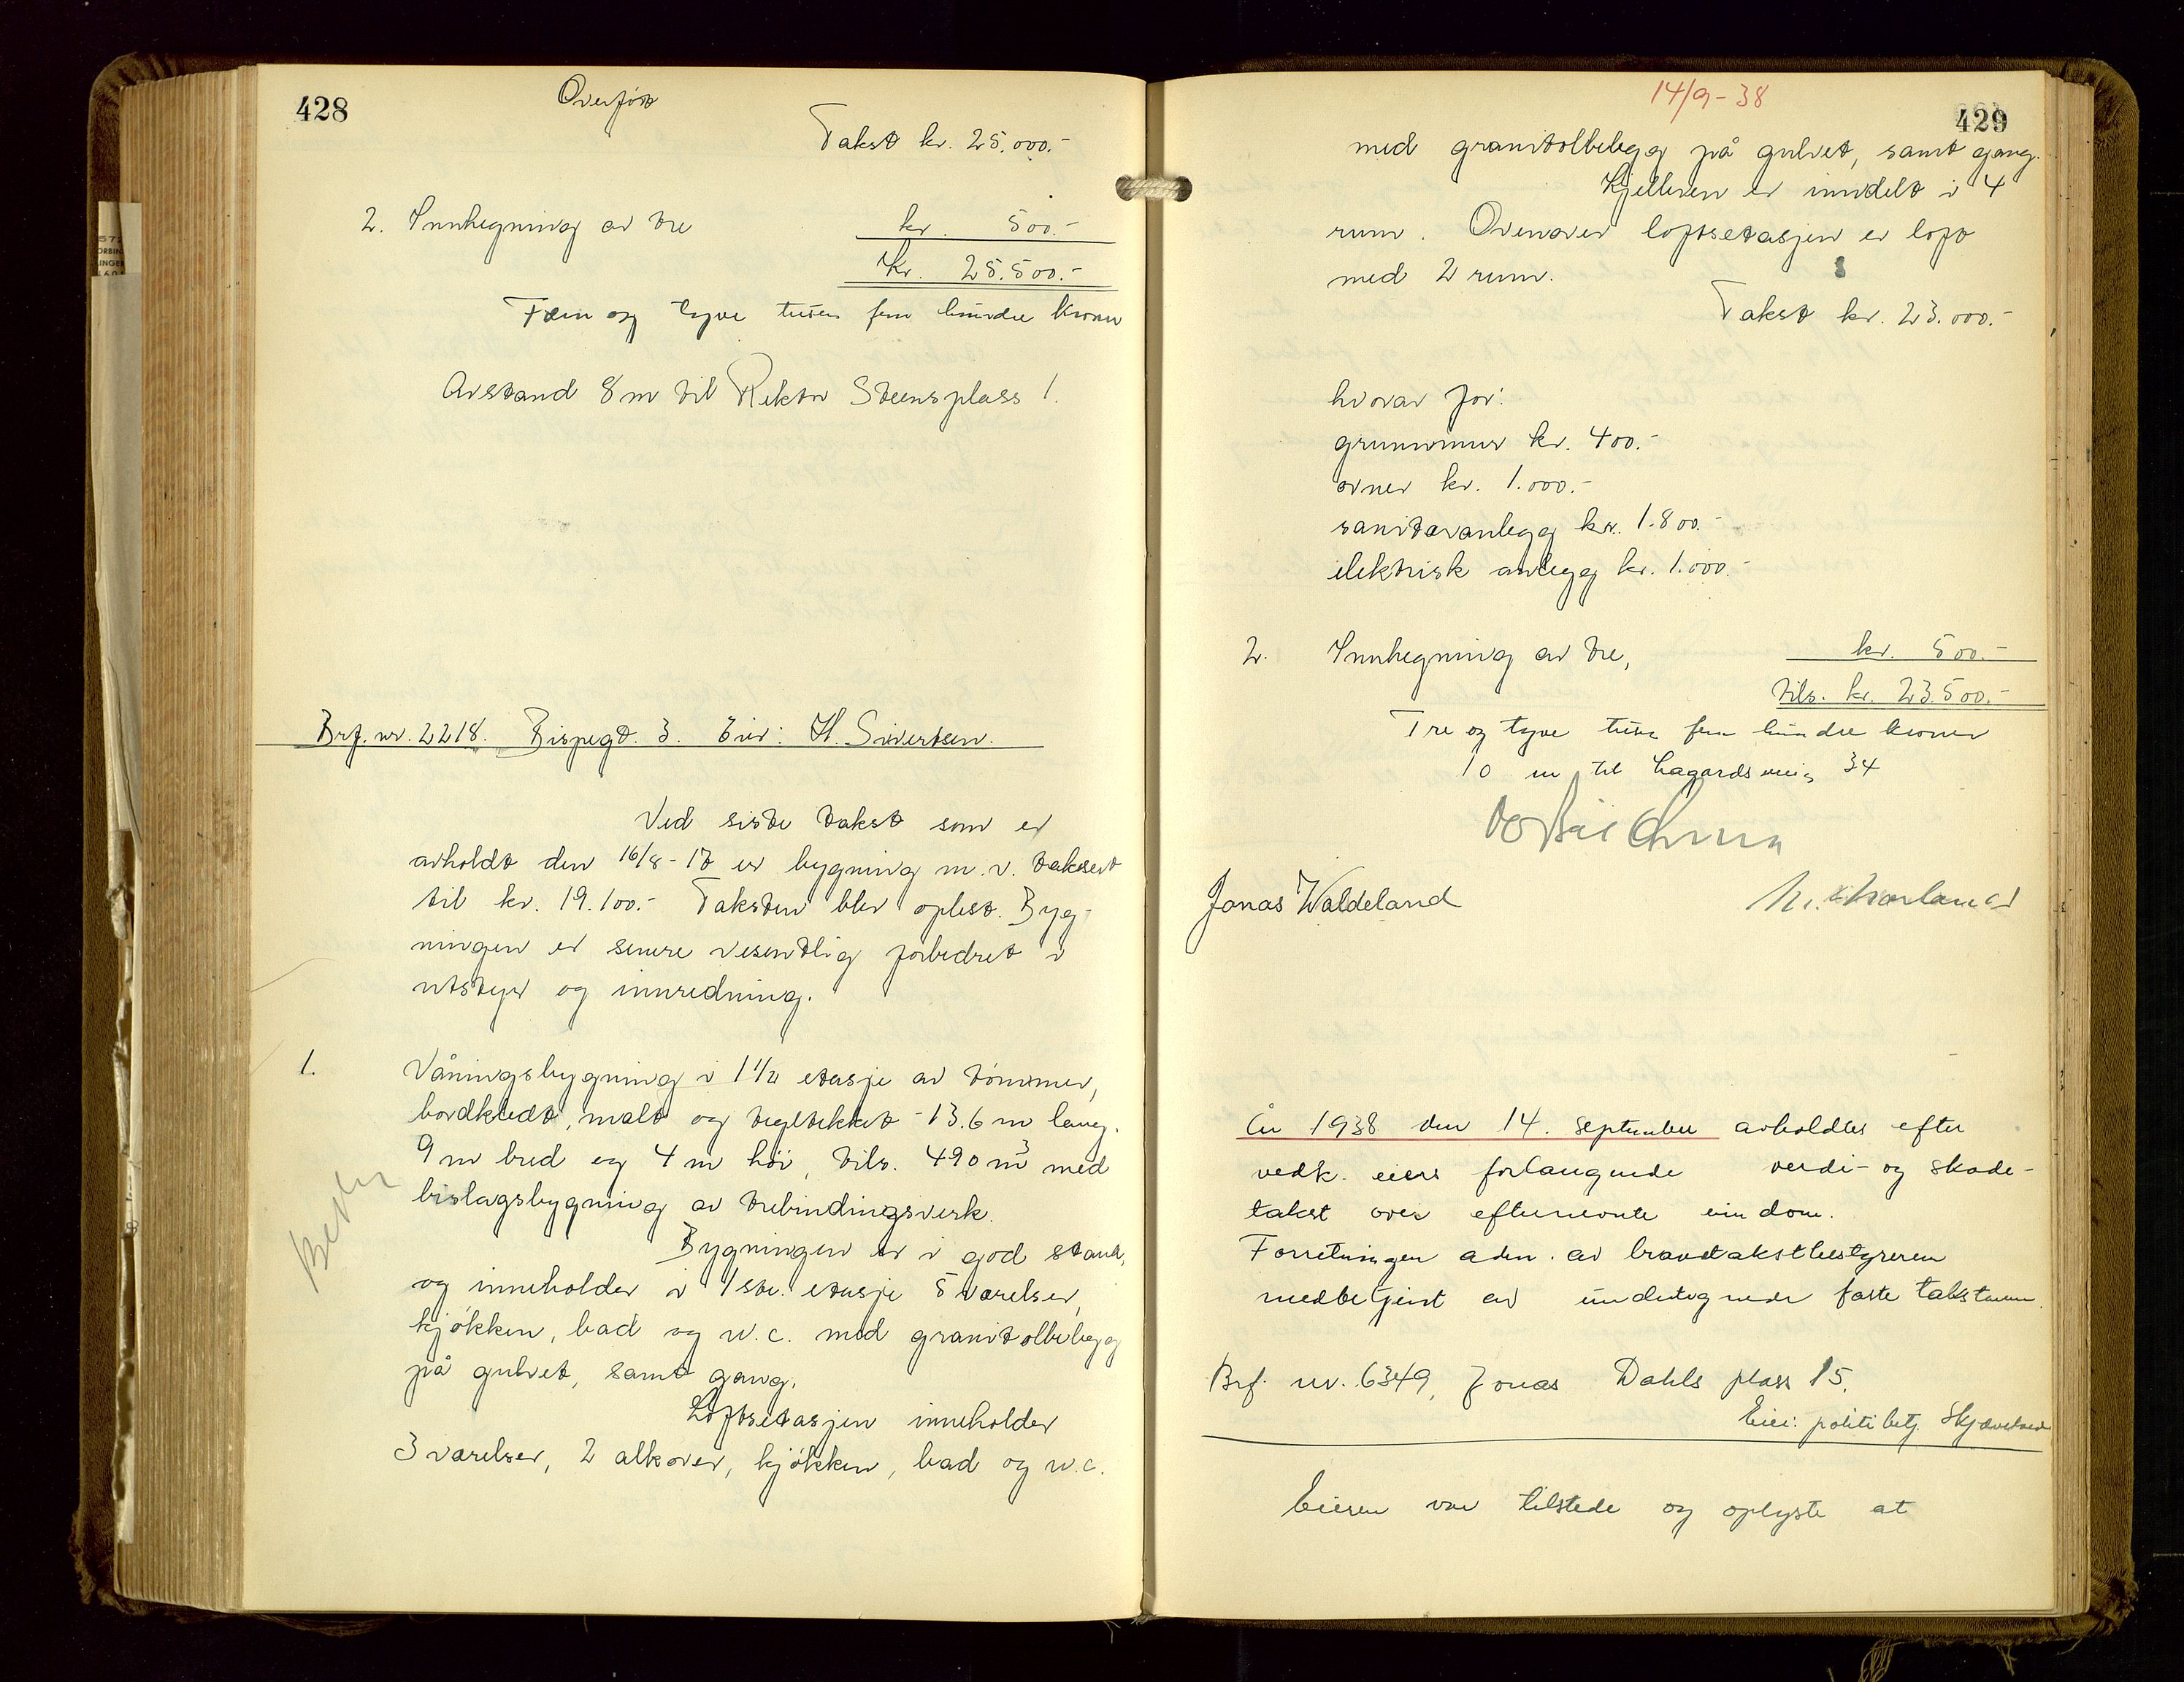 428
Overført
Takst kr. 25.000.-
2. Innhegning av tre kr. 500.-
Kr. 25.500.-
Fem og tyve tusen fem hundre kroner
Avstand 8 m til Rektor Steensplass 1.
Brf. nr. 2218. Bispegt. 3. Eier: H. Sivertsen.
Ved siste takst som er
avholdt den 16/8-17 er bygning m.v. taksert
til kr. 19.100.- Taksten blev oplest. Byg-
ningen er senere vesentlig forbedret i
utstyr og innredning.
1. Våningsbygning i 1 1/2 etasje av tømmer,
bordkledt, malt og tegltekket - 13.6 m lang.
9 m bred og 4 m høi, tils. 490 m3 med
bislagsbygning av trebindingsverk.
Bygningen er i god stand,
og inneholder i 1ste. etasje 5 værelser,
kjøkken, bad og w.c. med granitolbelegg
på gulvet, samt gang.
Loftsetasjen inneholder
3 værelser, 2 alkover, kjøkken, bad og w.c.
14/9-38
429
med granitolbelegg på gulvet, samt gang.
Kjelleren er inndelt i 4
rum. Ovenover loftsetasjen er loft
med 2 rum.
Takst kr. 23.000.-
hvorav for:
grunnmur kr. 400.-
ovner kr. 1.000.-
sanitæranlegg kr. 1.800.-
elektrisk anlegg kr. 1.000.-
2. Innhegning av tre, kr. 500.-
tils. kr. 23.500.-
Tre og tyve tusen fem hundre kroner
10 m til Lagårdsvei 34
Jonas Waldeland
År 1938 den 14. september avholdtes efter
vedk. eiers forlangende verdi- og skade-
takst over efternevnte eiendom.
Forretningen adm. av branntakstbestyreren
medbetjent av undertegnede faste takstmenn.
Brf. nr. 6349, Jonas Dahls plass 15.
Eier: politibetj.
Eieren var tilstede og oplyste at